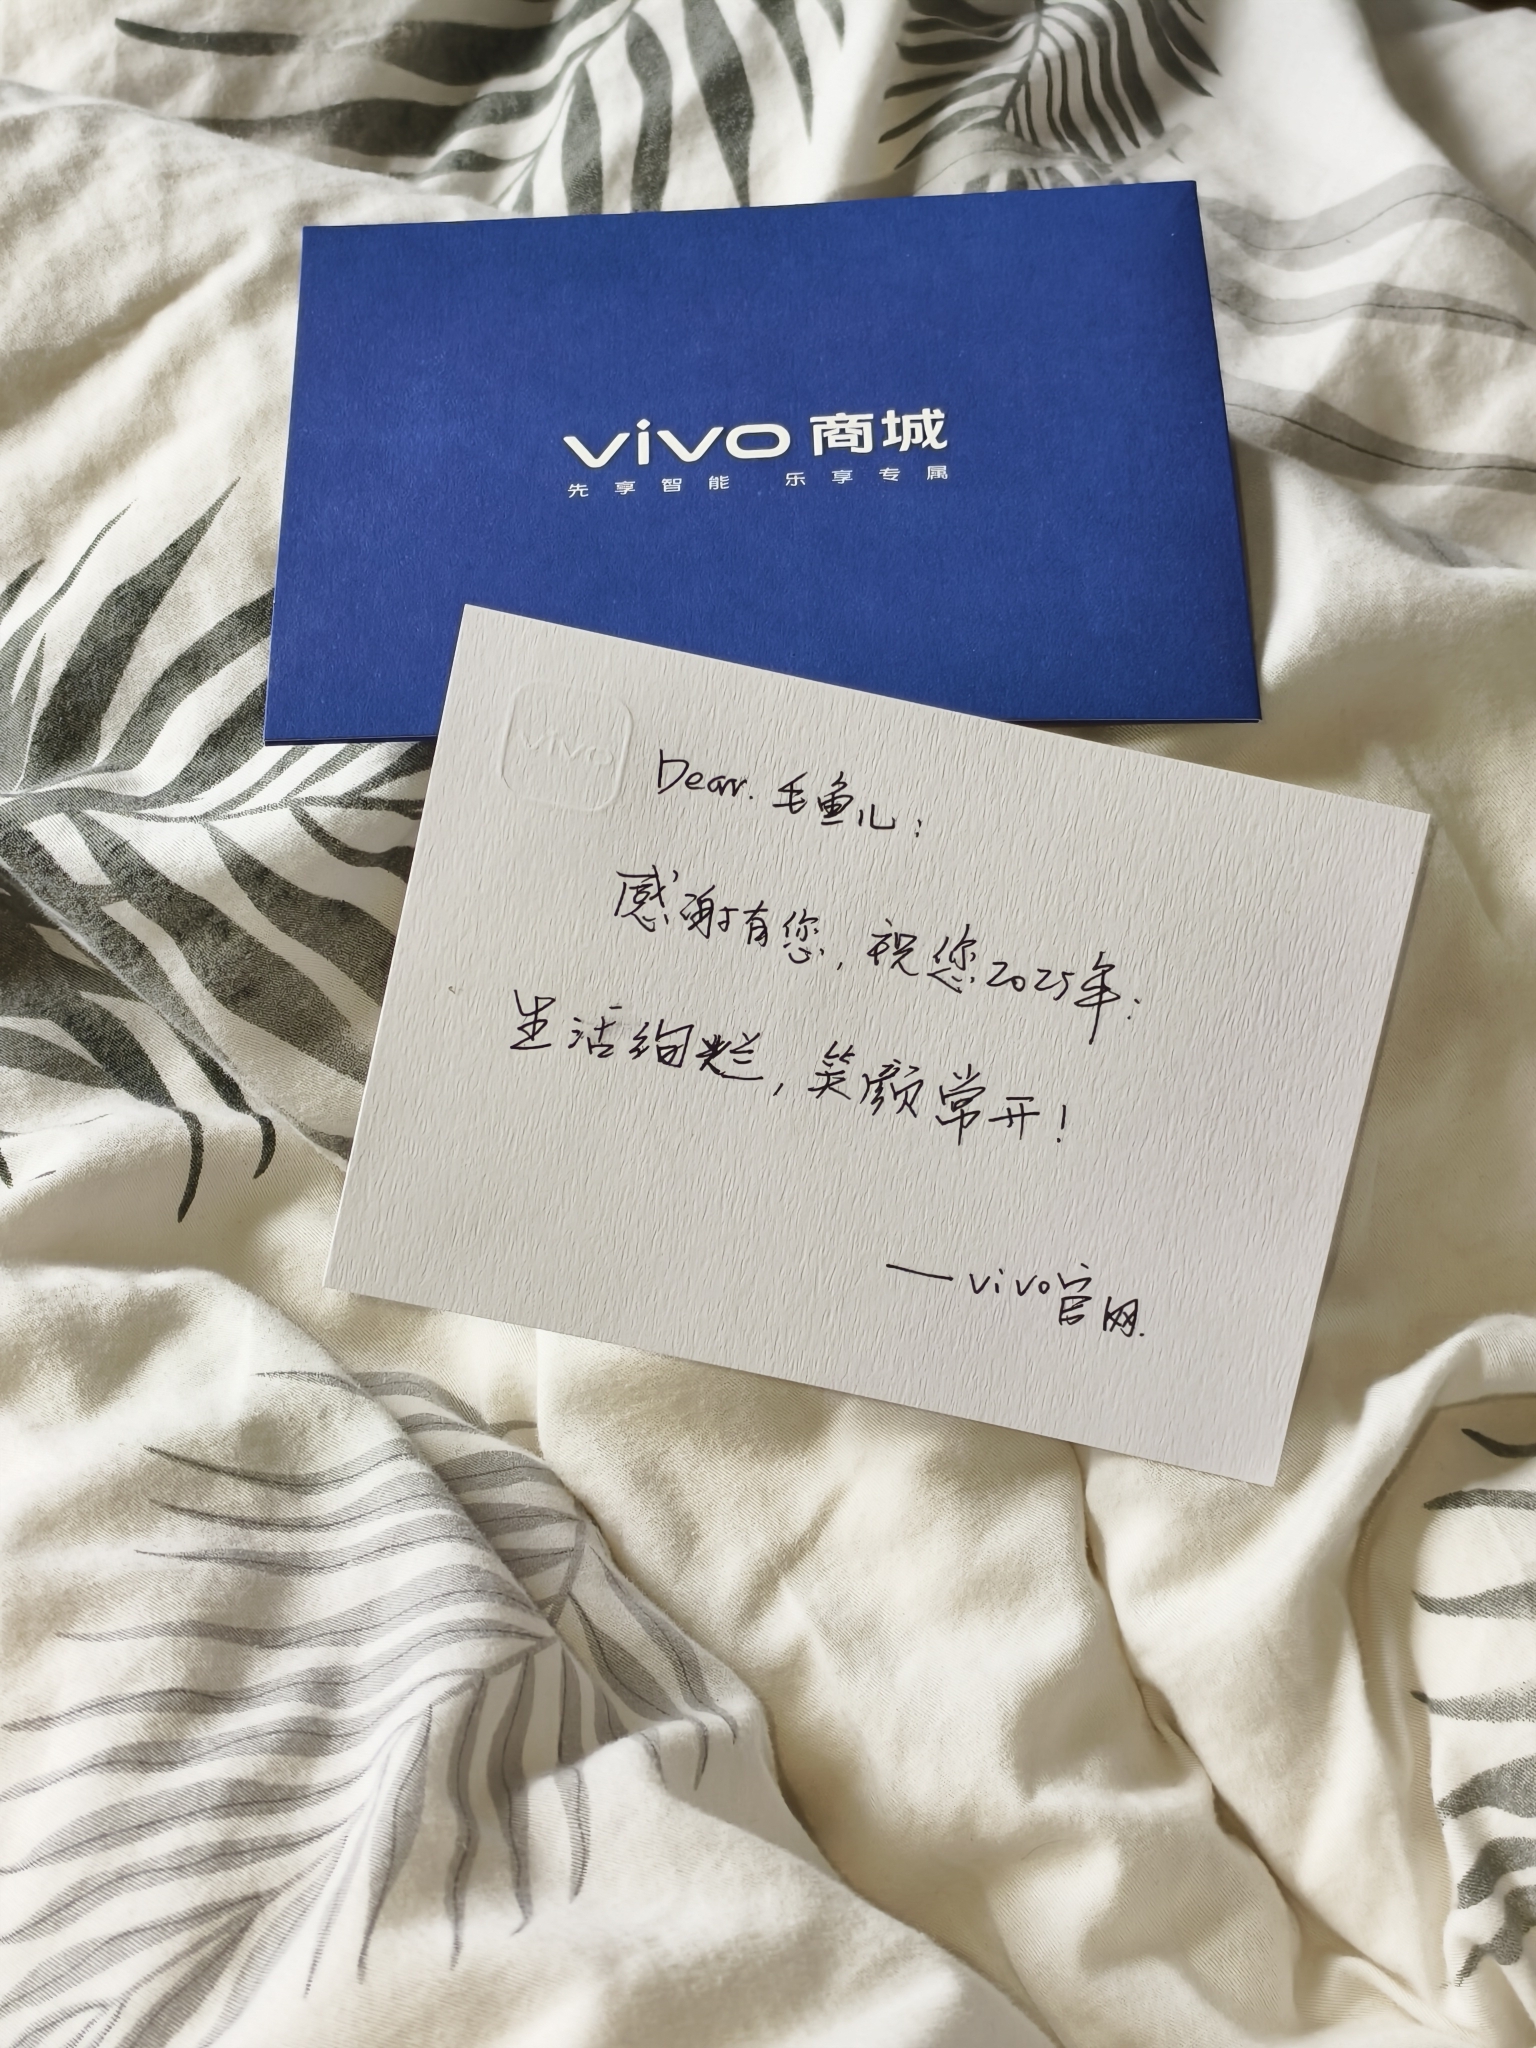 vivo 商城
先享智能 乐享专属
vivo
Dear. 毛鱼儿:
感谢有您,祝您2025年:
生活绚烂,笑颜常开!
—vivo官网.